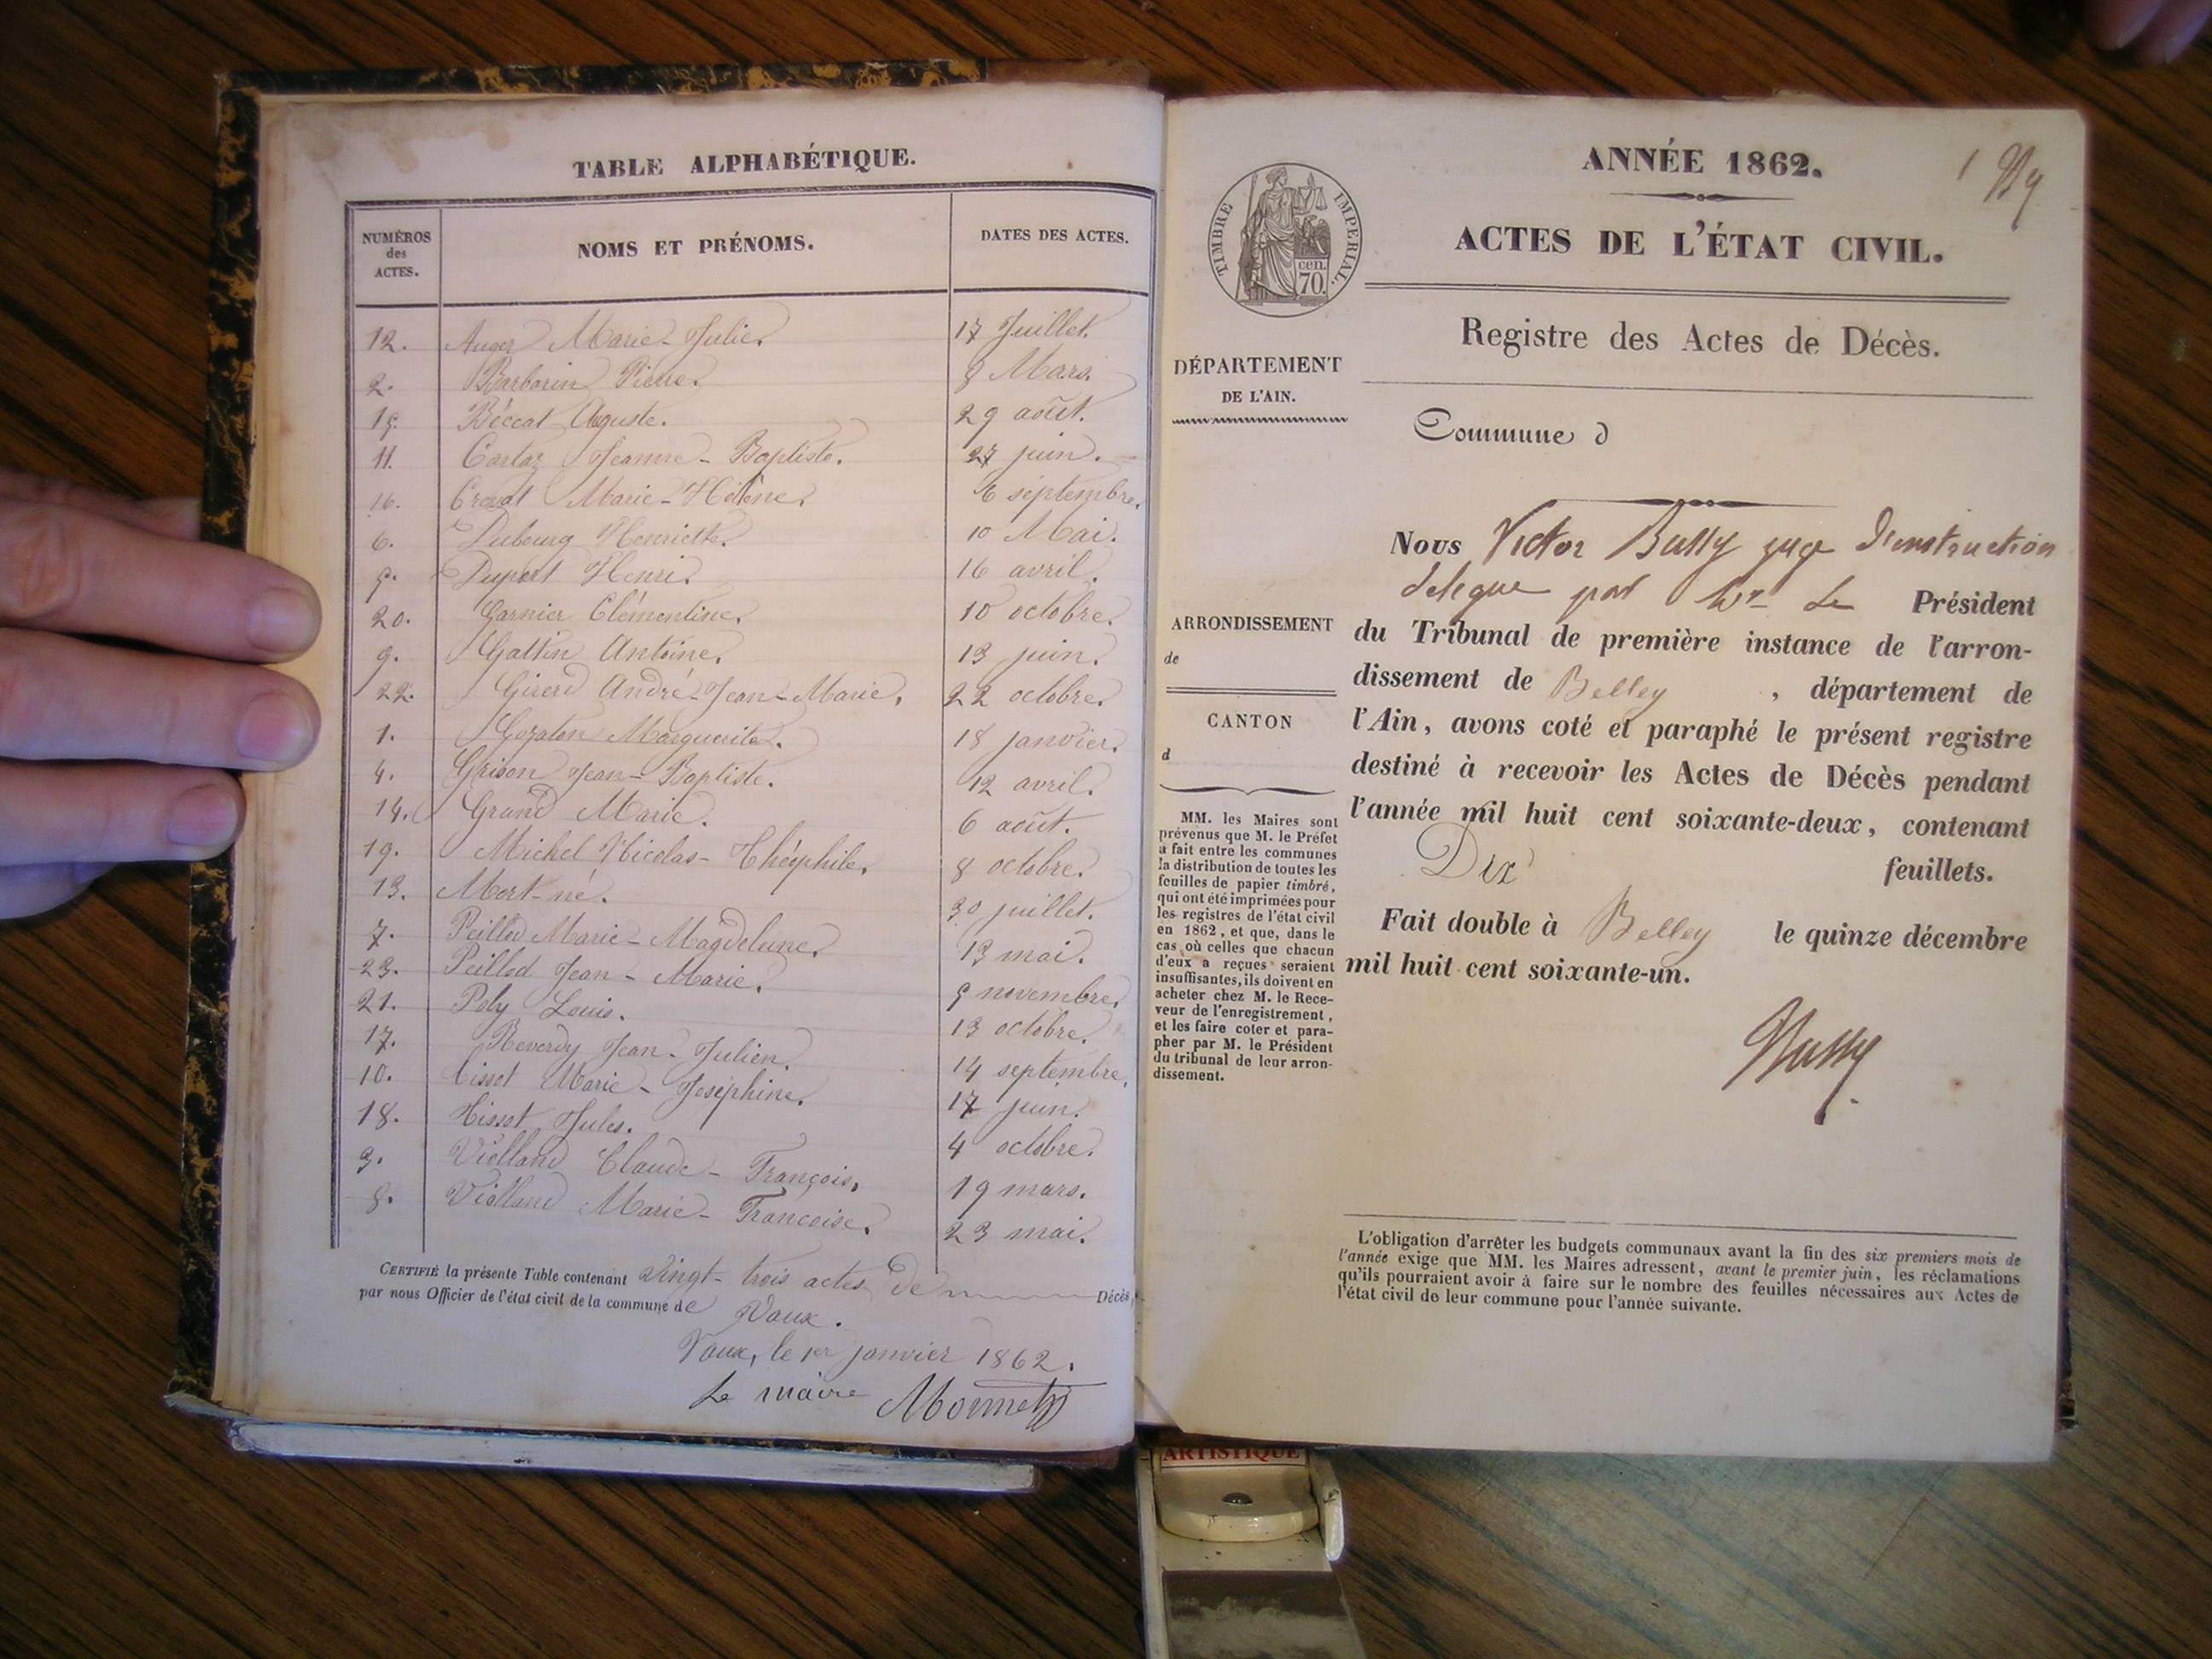 TABLE ALPHABÉTIQUE.
NUMÉROS des ACTES. NOMS ET PRÉNOMS. DATES DES ACTES.
12. Auger Marie-Julie. 17 Juillet.
2. Barbarin Pierre. 8 Mars.
15. Béccat Auguste. 29 août.
11. Carlaz Jeanne-Baptiste. 27 juin.
16. Marie-Hélène. 6 septembre.
6. Dubourg Henriette. 10 Mai.
5. Dupert Henri. 16 avril.
20. Garnier Clémentine. 10 octobre.
9. Gattin Antoine. 13 juin.
22. Girerd André-Jean-Marie. 22 octobre.
1. Marguerite. 18 janvier.
4. Grison Jean-Baptiste. 12 avril.
14. Grand Marie. 6 août.
19. Michel Nicolas-Théophile. 8 octobre.
13. Mort-né. 30 juillet.
7. Peillod Marie-Magdeleine. 13 mai.
23. Peillod Jean-Marie. 9 novembre.
21. Poly Louis. 13 octobre.
17. Reverdy Jean-Julien. 14 septembre.
10. Tissot Marie-Joséphine. 17 juin.
18. Tissot Jules. 4 octobre.
3. Violland Claude-François. 19 mars.
8. Violland Marie-Françoise. 23 mai.
CERTIFIÉ la présente Table contenant vingt-trois actes de Décès
par nous Officier de l'état civil de la commune de Vaux.
Vaux, le 1er janvier 1862.
Le maire Monnet
ANNÉE 1862.
1
TIMBRE IMPÉRIAL.
cen.
70.
ACTES DE L'ÉTAT CIVIL.
Registre des Actes de Décès.
DÉPARTEMENT
DE L'AIN.
Commune d
ARRONDISSEMENT
de
CANTON
d
MM. les Maires sont
prévenus que M. le Préfet
a fait entre les communes
la distribution de toutes les
feuilles de papier timbré,
qui ont été imprimées pour
les registres de l'état civil
en 1862, et que, dans le
cas où celles que chacun
d'eux a reçues seraient
insuffisantes, ils doivent en
acheter chez M. le Rece-
veur de l'enregistrement,
et les faire coter et para-
pher par M. le Président
du tribunal de leur arron-
dissement.
Nous Victor Bussy juge d'instruction
delegue par Mr Le Président
du Tribunal de première instance de l'arron-
dissement de Belley, département de
l'Ain, avons coté et paraphé le présent registre
destiné à recevoir les Actes de Décès pendant
l'année mil huit cent soixante-deux, contenant
Dix feuillets.
Fait double à Belley le quinze décembre
mil huit cent soixante-un.
Bussy
L'obligation d'arrêter les budgets communaux avant la fin des six premiers mois de
l'année exige que MM. les Maires adressent, avant le premier juin, les réclamations
qu'ils pourraient avoir à faire sur le nombre des feuilles nécessaires aux Actes de
l'état civil de leur commune pour l'année suivante.
ARTISTIQUE